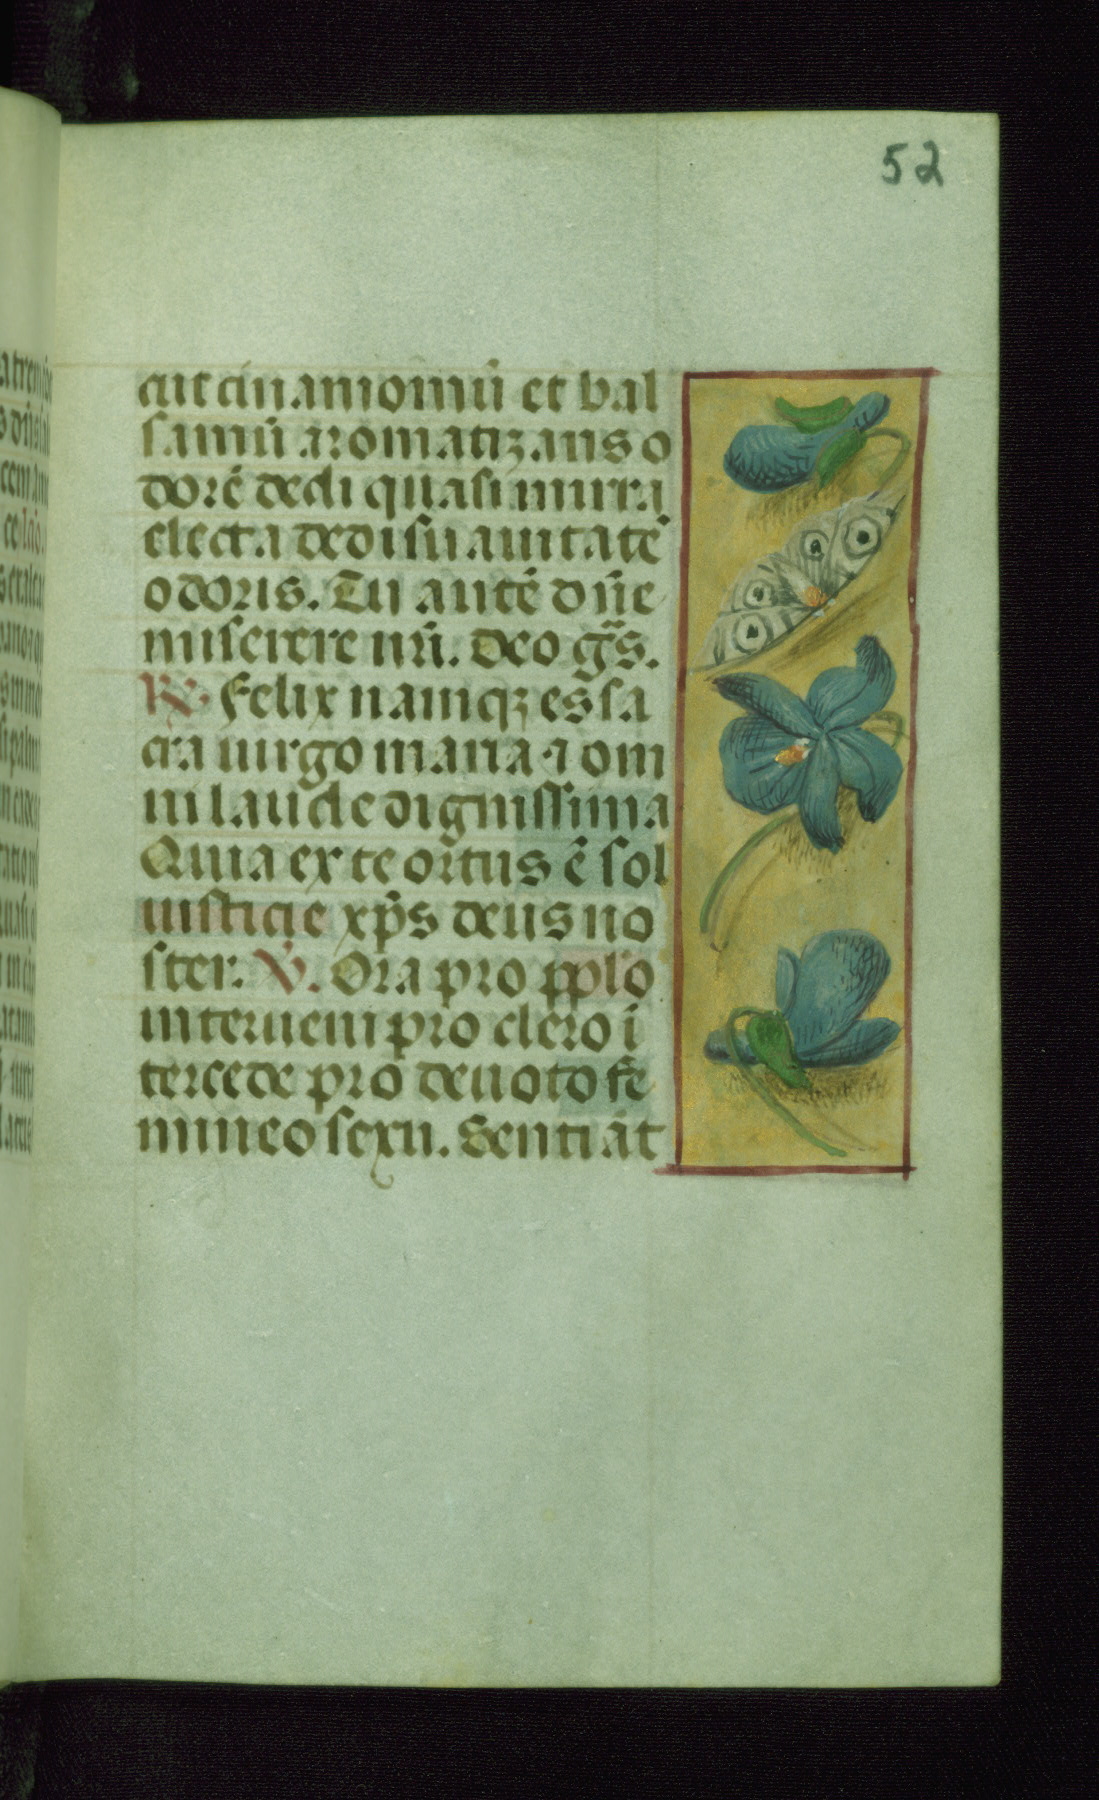 52
cut cinamomū et bal
samū aromatizans o
dorē dedi quasi mirra
electa dedi suavitatē
odoris. Tu autē dñe
miserere nr̄i. Deo gr̄s.
R̶ Felix namqꝫ es sa
cra virgo maria ⁊ om
ni laude dignissima
Quia ex te ortus ē sol
iusticie xp̄s deus no
ster. V̶. Ora pro pplo
interueni pro clero ī
tercede pro deuoto fe
mineo sexu. Sentiāt